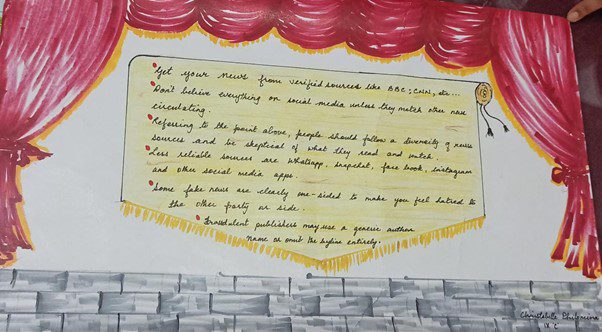 Get your news from verified sources like ABC, CNN, etc...
Don't believe everything on social media unless they match other news
circulating.
Referring to the point above, people should follow a diversity of news
sources and be skeptical of what they read and watch.
Less reliable sources are whatsapp, snapchat, face book, instagram
and other social media apps.
Some fake news are clearly one-sided to make you feel hatred to
the other party or side.
Fraudulent publishers may use a generic author
name or omit the byline entirely.
Christabelle